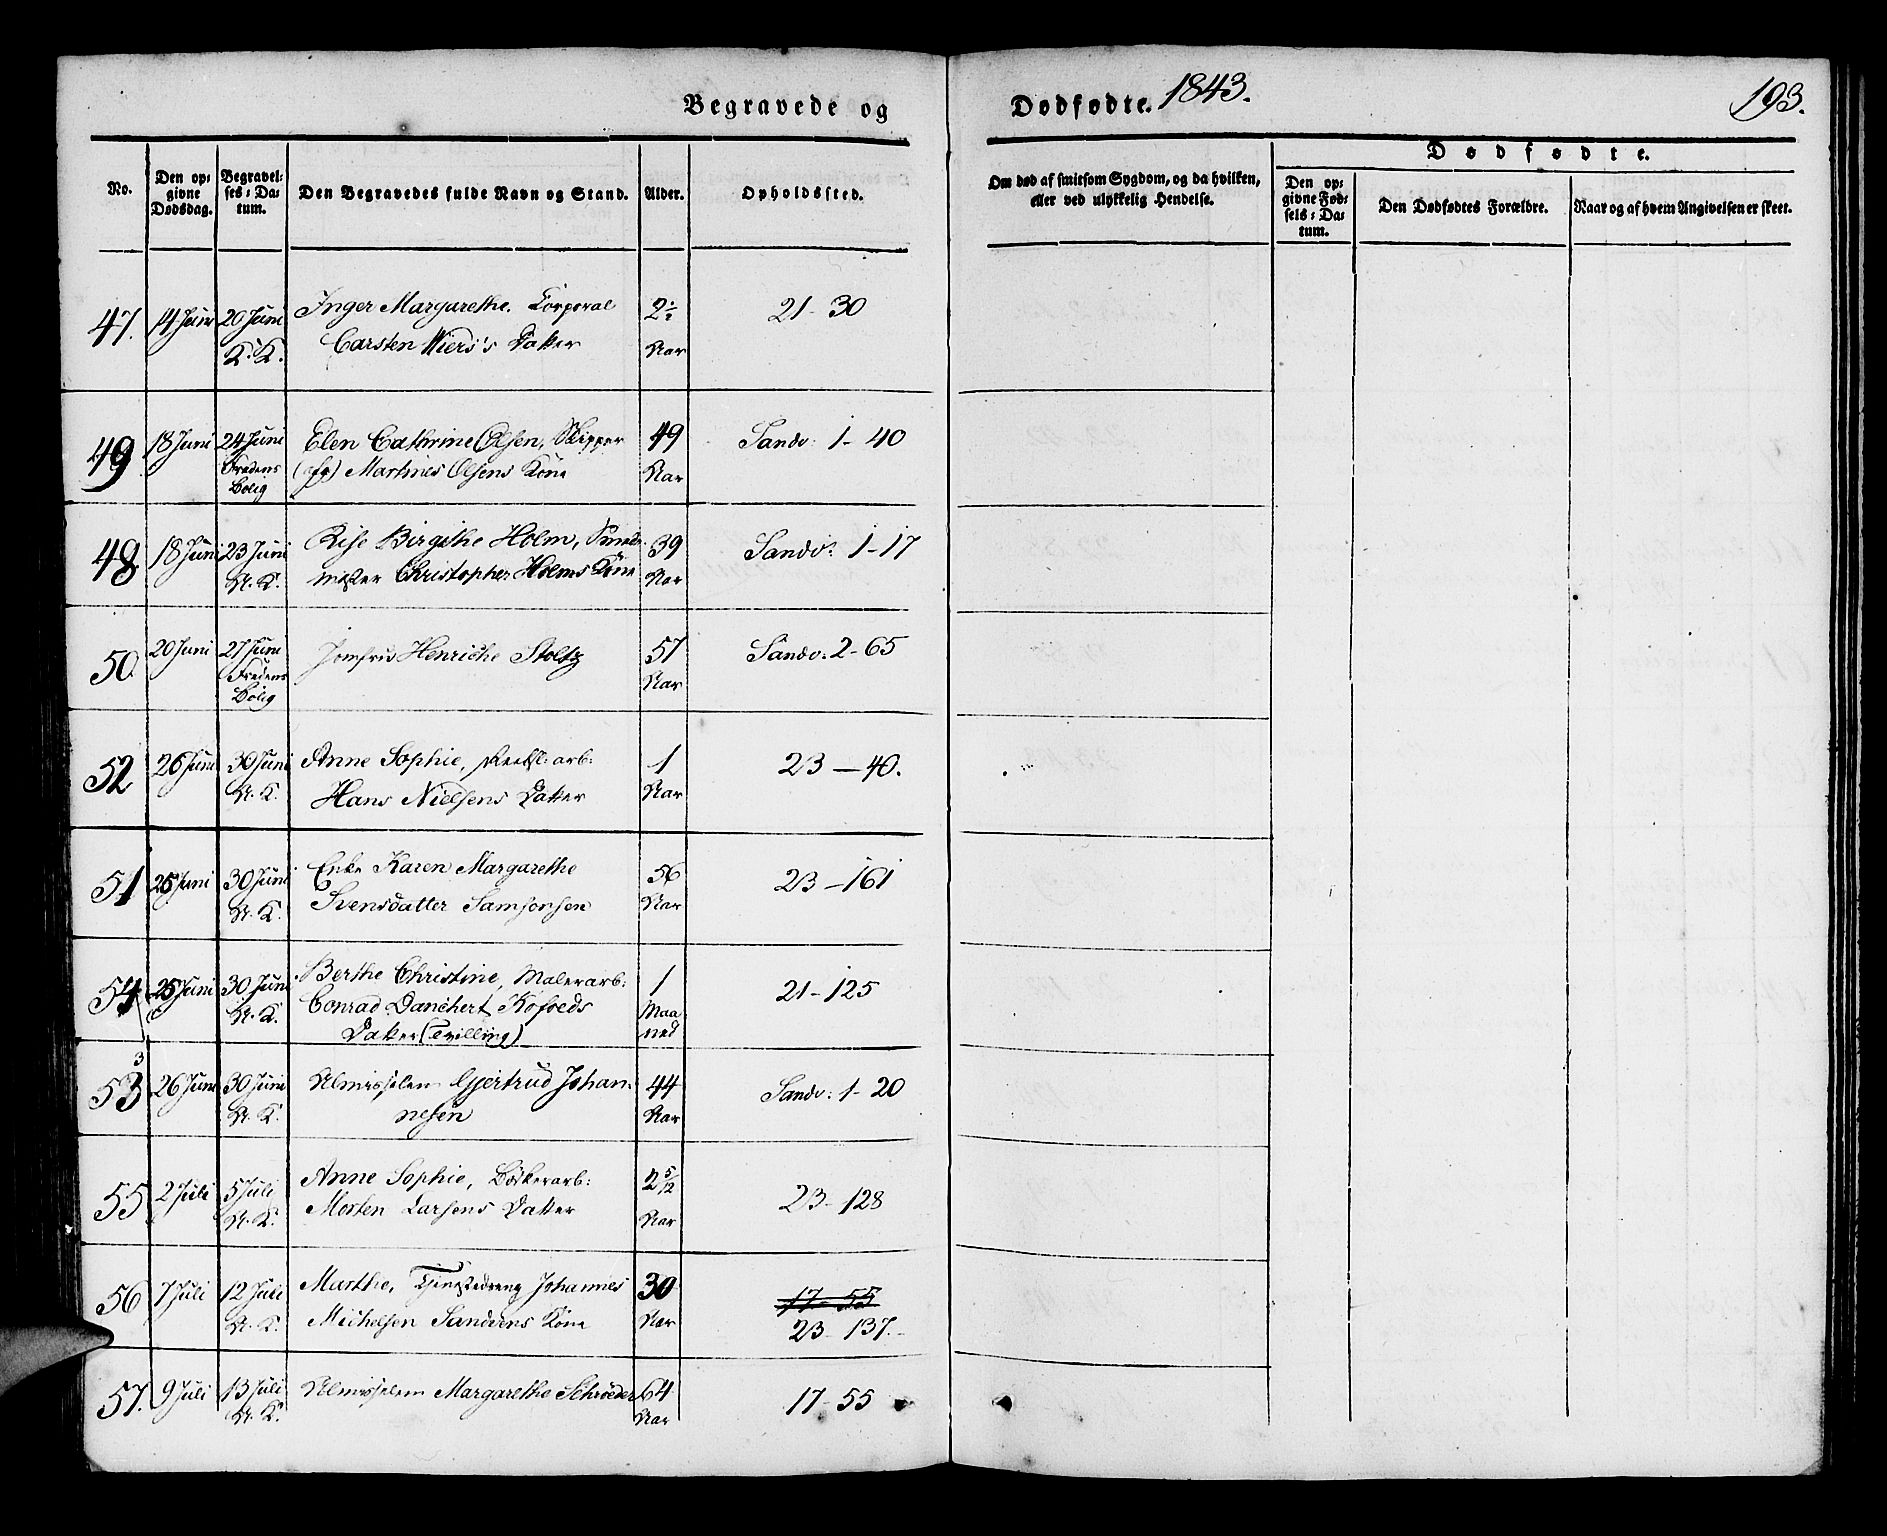 Begravede og
Dødfødte. 1843.
193.
No.
Den opgivne Dødsdag.
Begravelses-Datum.
Den Begravedes fulde Navn og Stand.
Alder.
Opholdssted.
Om død af smitsom Sygdom, og da hvilken,
eller ved ulykkelig Hendelse.
Dødfødte.
Den opgivne Fødsels-Datum.
Den Dødfødtes Forældre.
Naar og af hvem Angivelsen er skeet.
47. 14 Juni 20 Juni Inger Margarethe, Corporal 21-30
K. K. Carsten Wiers's Datter Aar
49. 18 Juni 24 Juni Elen Cathrine Olsen, Skipper 49 Sandv: 1-40
Fredens Martines Olsens Kone Aar
Bolig
48. 18 Juni 23 Juni Birgithe Holm, 39 Sandv: 1-17
K. K. Christopher Holms Kone Aar
50. 20 Juni 27 Juni Jomfru Henricke Stoltz 57 Sandv: 2-65
Fredens Aar
Bolig
52 26 Juni 30 Juni Anne Sophie, arb: 1 23-40.
N. K. Hans Nielsens Datter Aar
51 25 Juni 30 Juni Enke Karen Margarethe 56 23-161
N. K. Svensdatter Samsonsen Aar
54 25 Juni 30 Juni Berthe Christine, Malerarb: 1 21-125
N. K. Conrad Danchert Kofoeds Maa
Datter (Tvilling) ned
3
53 26 Juni 30 Juni Almisselem Gjertrud Johan- 44 Sandv: 1-20
N. K. nesen Aar
55 2 Juli 5 Juli Anne Sophie, Bødkerarb: 2 5/12 23-128
N. K. Morten Larsens Datter Aar
56 7 Juli 12 Juli Marthe, Tjenestedreng Johannes 30 17-55
N. K. Michelsen Sandvens Kone Aar 23-137.
57. 9 Juli 13 Juli Almisselem Margarethe Schrøder 64 17-55
N. K. Aar